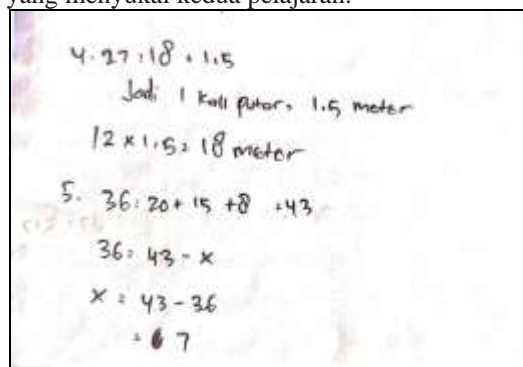 yang menyukai kedua pelajaran.
4. 27 : 18 = 1.5
Jadi 1 kali putar = 1.5 meter
12 x 1.5 = 18 meter
5. 36 = 20 + 15 + 8 = 43
36 = 43 - x
x = 43 - 36
= 7